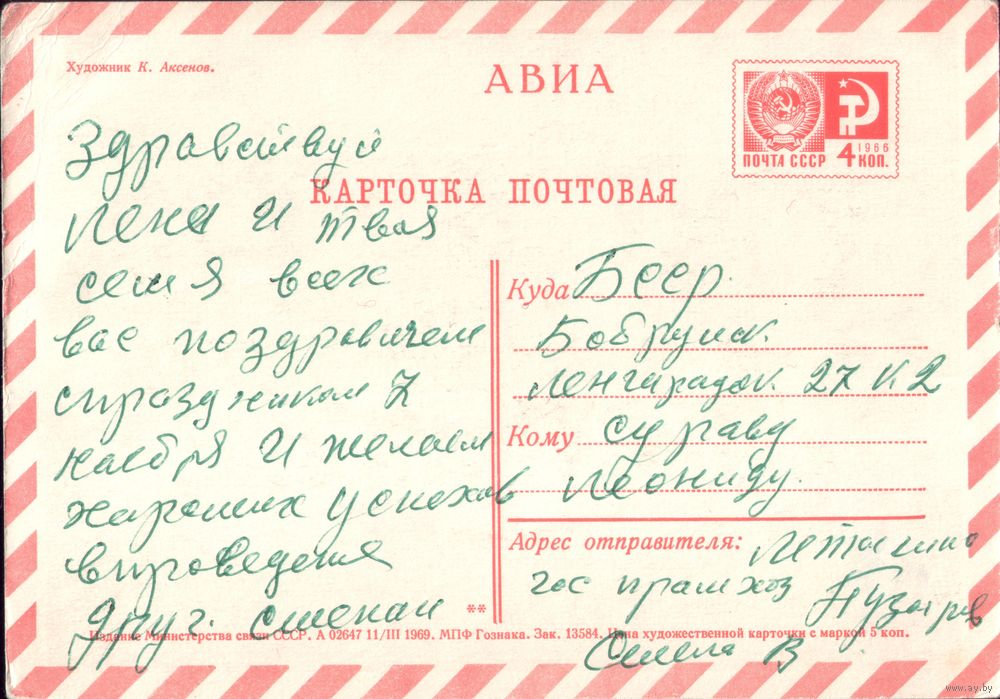 Художник К. Аксенов.
АВИА
ПОЧТА СССР 4 КОП.
1966
КАРТОЧКА ПОЧТОВАЯ
Здравствуй
Лена И твоя
семя всех
вас поздравляем
спраздником 7
ноября И желаем
хароших успехов
впроведения
друг.
Куда Бсср.
Бобруиск.
27 К 2
Кому сураву
Леониду.
Адрес отправителя:
гос
**
Издание Министерства связи СССР. А 02647 11/III 1969. МПФ Гознака. Зак. 13584. Цена художественной карточки с маркой 5 коп.
В
www.ay.by